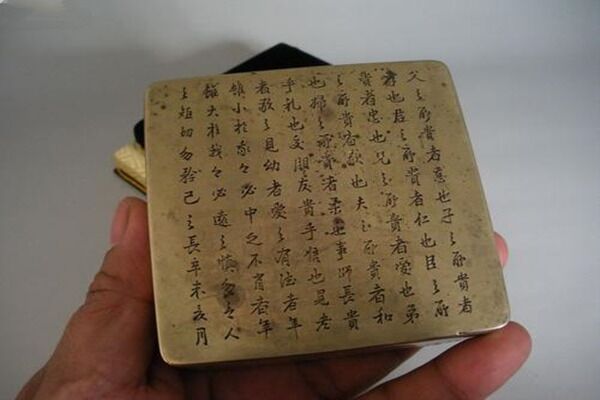 父之所貴者慈也子之所貴者
孝也君之所貴者仁也臣之所
貴者忠也兄之所貴者愛也弟
之所貴者敬也夫之所貴者和
也婦之所貴者柔也事師長貴
乎礼也交朋友貴乎信也見老
者敬之見幼者愛之有德者年
雖小於我々必尊之不肖者年
雖大於我々必遠之慎勿人
之短切勿矜己之長辛未夏月